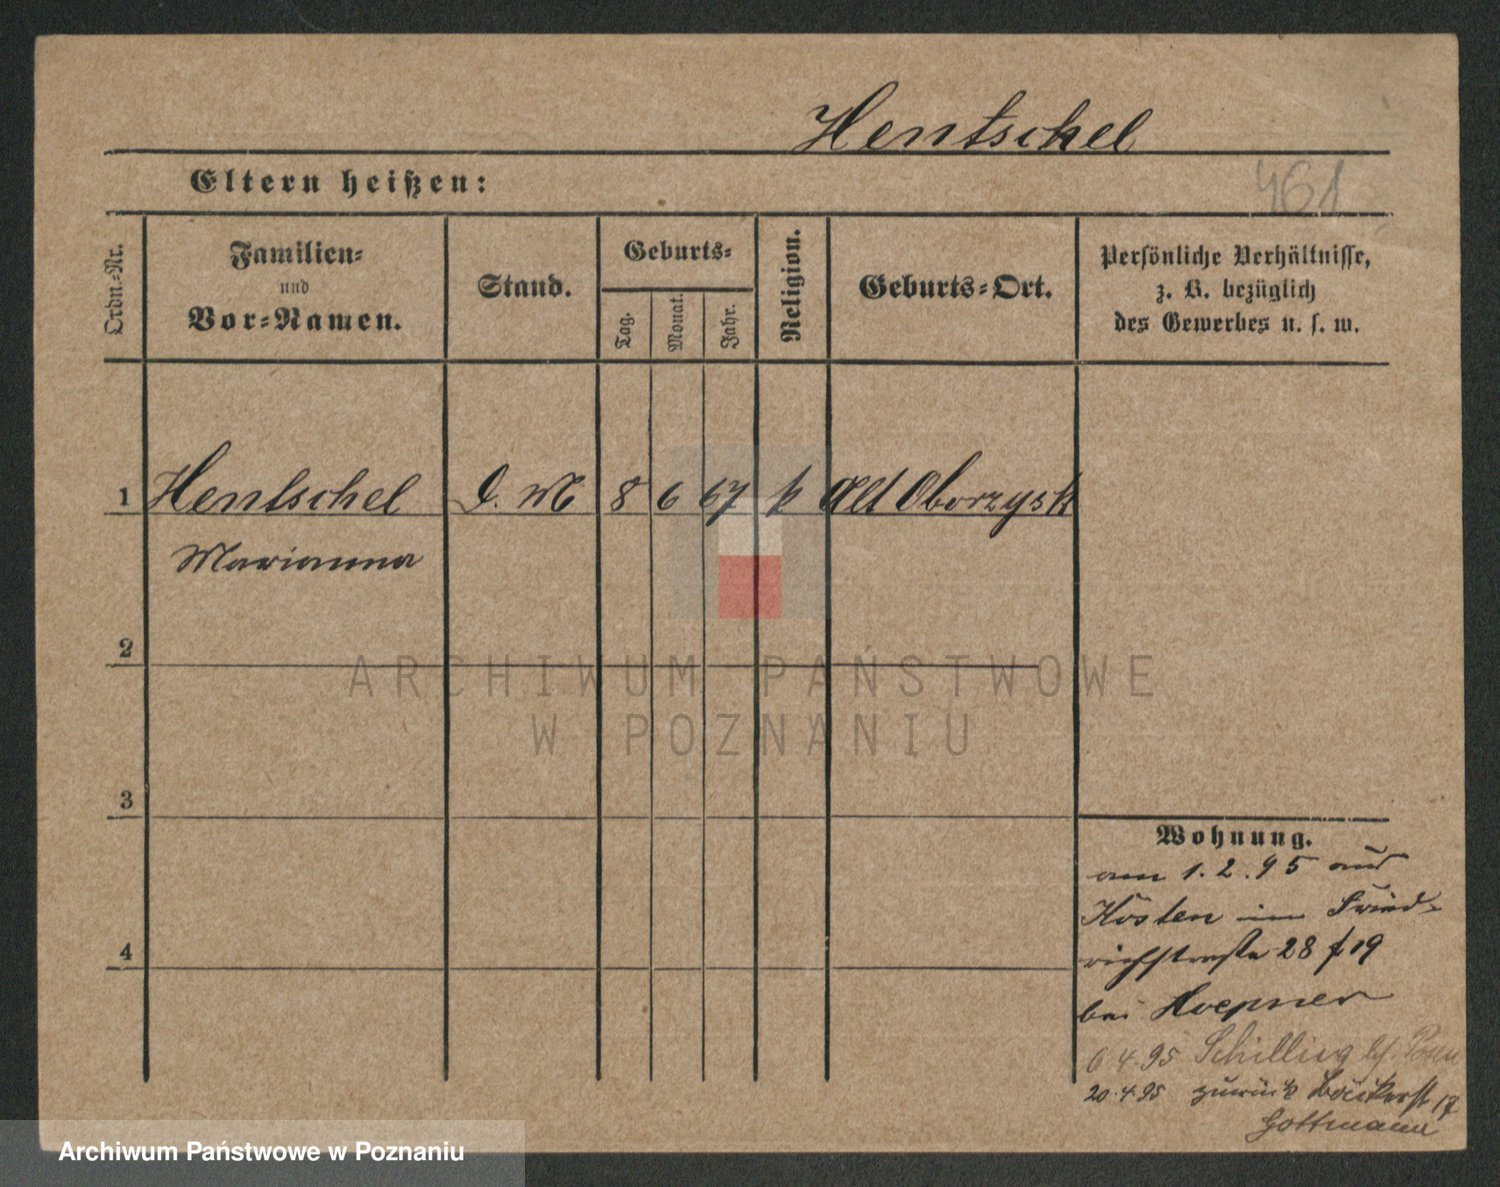 Hentschel
Eltern heißen:
461
Ordn.-Nr.
Familien-
und
Vor-Namen.
Stand.
Geburts-
Tag.
Monat.
Jahr.
Religion.
Geburts-Ort.
Persönliche Verhältnisse,
z. B. bezüglich
des Gewerbes u. s. w.
1 Hentschel D. M 8 6 67 k Alt Oborzysk
Marianna
2
3
4
Wohnung.
am 1.2.95 aus
Kosten in Fried-
richstraße 28 f 19
bei Hoepner
6 4.95 Schilling bf. Posen
20.4.95 zurück Bäckerst 17
Gottmann
ARCHIWUM PAŃSTWOWE
W POZNANIU
Archiwum Państwowe w Poznaniu